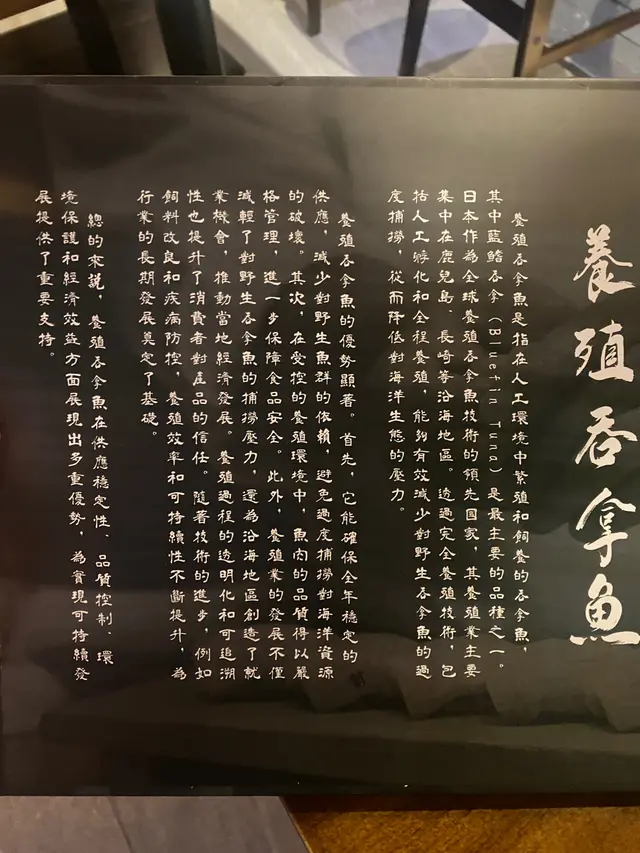 養殖吞拿魚
養殖吞拿魚是指在人工環境中繁殖和飼養的吞拿魚，
其中藍鰭吞拿（Bluefin Tuna）是最主要的品種之一。
日本作為全球養殖吞拿魚技術的領先国家，其養殖業主要
集中在鹿兒島、長崎等沿海地區。透過完全養殖技術，包
括人工孵化和全程養殖，能夠有效減少對野生吞拿魚的過
度捕撈，從而降低對海洋生態的壓力。
養殖吞拿魚的優勢顯著。首先，它能確保全年穩定的
供應，減少對野生魚群的依賴，避免過度捕撈對海洋資源
的破壞。其次，在受控的養殖環境中，魚肉的品質得以嚴
格管理，進一步保障食品安全。此外，養殖業的發展不僅
減輕了對野生吞拿魚的捕撈壓力，還為沿海地區創造了就
業機會，推動當地經濟發展。養殖過程的透明化和可追溯
性也提升了消費者對產品的信任。隨著技術的進步，例如
飼料改良和疾病防控，養殖效率和可持續性不斷提升，為
行業的長期發展奠定了基礎。
總的來說，養殖吞拿魚在供應穩定性、品質控制、環
境保護和經濟效益方面展現出多重優勢，為實現可持續發
展提供了重要支持。